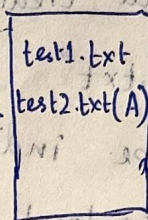 test1.txt
test2.txt(A)